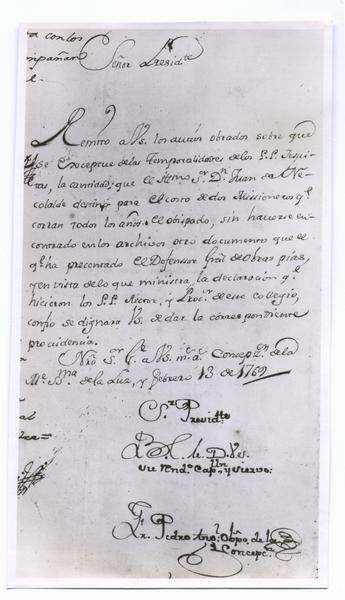 a con los
mpañan
Señor Presid.te
Remito a Vs. los autos obrados sobre que
se Exceptue de las Temporalidades de los P.P. Jesui-
tas, la cantidad, que el Illmo S.r D.n Juan de Ne
colalde destinò para el costo de dos Missioneros q.e
corran todos los años el obispado, sin haverse en-
contrado en los archivos otro documento que el
q.e ha precentado el Defensor Gral de obras pias,
y en vista de lo que ministra, la declaracion q.e
hicieron los P.P. Rector, y Proc.r de este collegio,
confio se dignara Vs. de dar la correspondiente
providencia.
Nrô S.or G.e a Vs. m.s a.s Concep.n de la
M.e S.ma de la Luz, y febrero 13 de 1769
S.r Presid.te
B. L. M. de V.s
su rend.o Cap.n y siervo
Fr. Pedro Ang.l Obpo. de la
Concepc.n